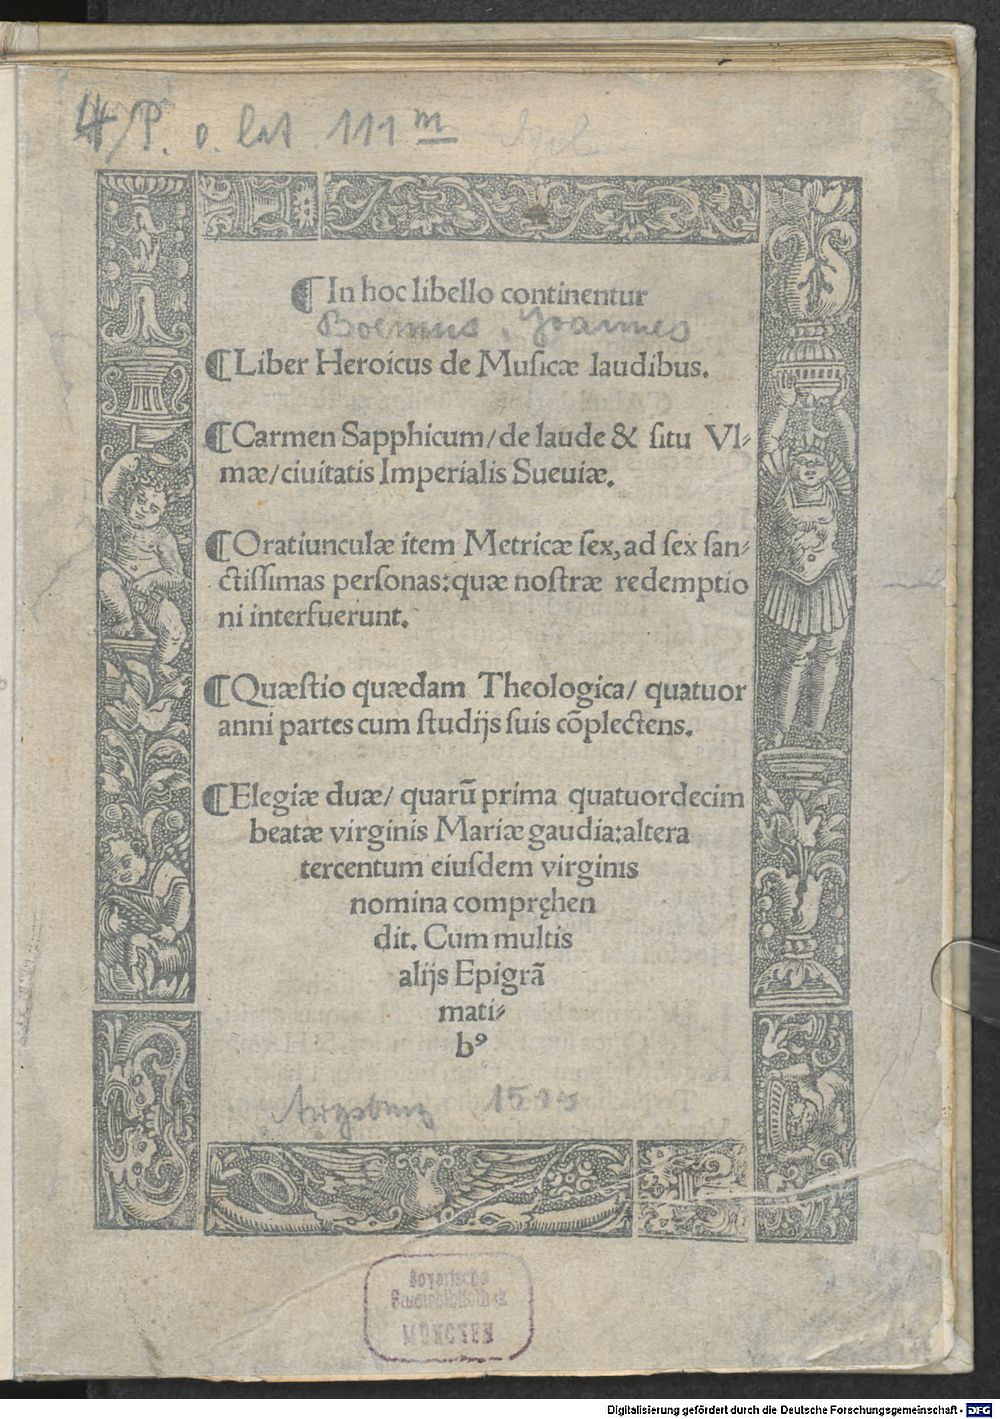 4/P. o. lat. 111 m
¶In hoc libello continentur
Boemus, Joannes
¶Liber Heroicus de Muſicæ laudibus.
¶Carmen Sapphicum/de laude & ſitu Vl⸗
mæ/ciuitatis Imperialis Sueuiæ.
¶Oratiunculæ item Metricæ ſex, ad ſex ſan⸗
ctiſſimas perſonas: quæ noſtræ redemptio
ni interfuerunt.
¶Quæſtio quædam Theologica/ quatuor
anni partes cum ſtudijs ſuis cõplectens.
¶Elegiæ duæ/ quarũ prima quatuordecim
beatæ virginis Mariæ gaudia: altera
tercentum eiuſdem virginis
nomina compręhen
dit. Cum multis
alijs Epigrã
mati⸗
bꝰ
Augsburg
Bayerische
Staatsbibliothek
MÜNCHEN
Digitalisierung gefördert durch die Deutsche Forschungsgemeinschaft - DFG